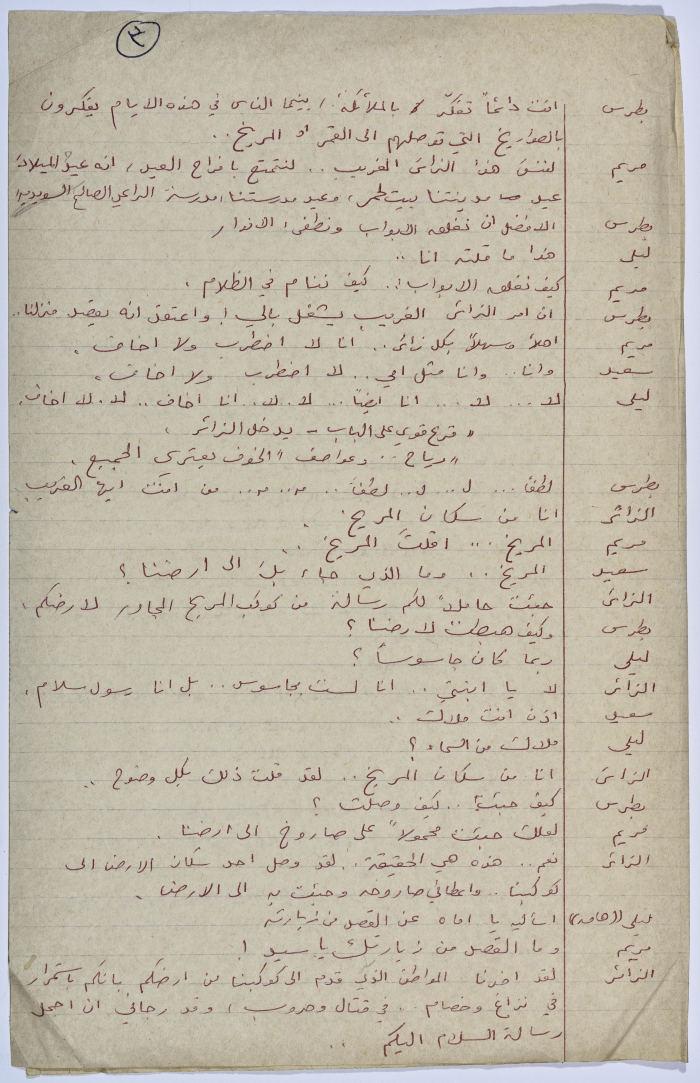 ٣
بطرس انت دائماً تفكّر بالملائكة! بينما الناس في هذه الايام يفكرون
بالصواريخ التي توصلهم الى القمر او المريخ..
مريم لننسَ هذا الزائر الغريب.. لنتمتع بافراح العيد، انه عيد الميلاد،
عيد مدينتنا بيت لحم، وعيد مدرستنا، مدرسة الراعي الصالح السويدية
بطرس الافضل ان نغلق الابواب ونطفىء الانوار
ليلى هذا ما قلته انا..
مريم كيف نغلق الابواب!.. كيف ننام في الظلام.
بطرس ان امر الزائر الغريب يشغل بالي! واعتقد انه يقصد منزلنا..
مريم اهلاً وسهلاً بكل زائر.. انا لا اضطرب ولا اخاف.
سعيد وانا.. وانا مثل امي.. لا اضطرب ولا اخاف.
ليلى لا... لا... انا ايضاً... لا.. لا.. انا اخاف.. لا. لا اخاف.
"قرع قوي على الباب - يدخل الزائر.
"رياح.. وعواصف "الخوف يعتري الجميع.
بطرس لطفاً... ل.. ل.. لطفاً.. م... م... من انت ايها الغريب
الزائر انا من سكان المريخ.
مريم المريخ... اقلتَ المريخ..
سعيد المريخ.. وما الذي جاء بكَ الى ارضنا؟
الزائر جئت حاملاً لكم رسالة من كوكب المريخ المجاور لارضكم.
بطرس وكيف هبطت لارضنا؟
ليلى ربما كان جاسوساً؟
الزائر لا يا ابنتي.. انا لست بجاسوس.. بل انا رسول سلام.
سعيد اذن انت ملاك..
ليلى ملاك من السماء؟
الزائر انا من سكان المريخ.. لقد قلت ذلك بكل وضوح..
بطرس كيف جئت؟.. كيف وصلت؟
مريم لعلك جئت محمولاً على صاروخ الى ارضنا.
الزائر نعم.. هذه هي الحقيقة.. لقد وصل احد سكان الارض الى
كوكبنا.. واعطاني صاروخه وجئت به الى الارض.
ليلى ((هامسة)) اسأليه يا اماه عن القصد من زيارته
مريم وما القصد من زيارتك يا سيد!
الزائر لقد اخبرنا المواطن الذي قدم الى كوكبنا من ارضكم بانكم باستمرار
في نزاع وخصام.. في قتال وحروب، وقد رجاني ان احمل
رسالة السلام اليكم..